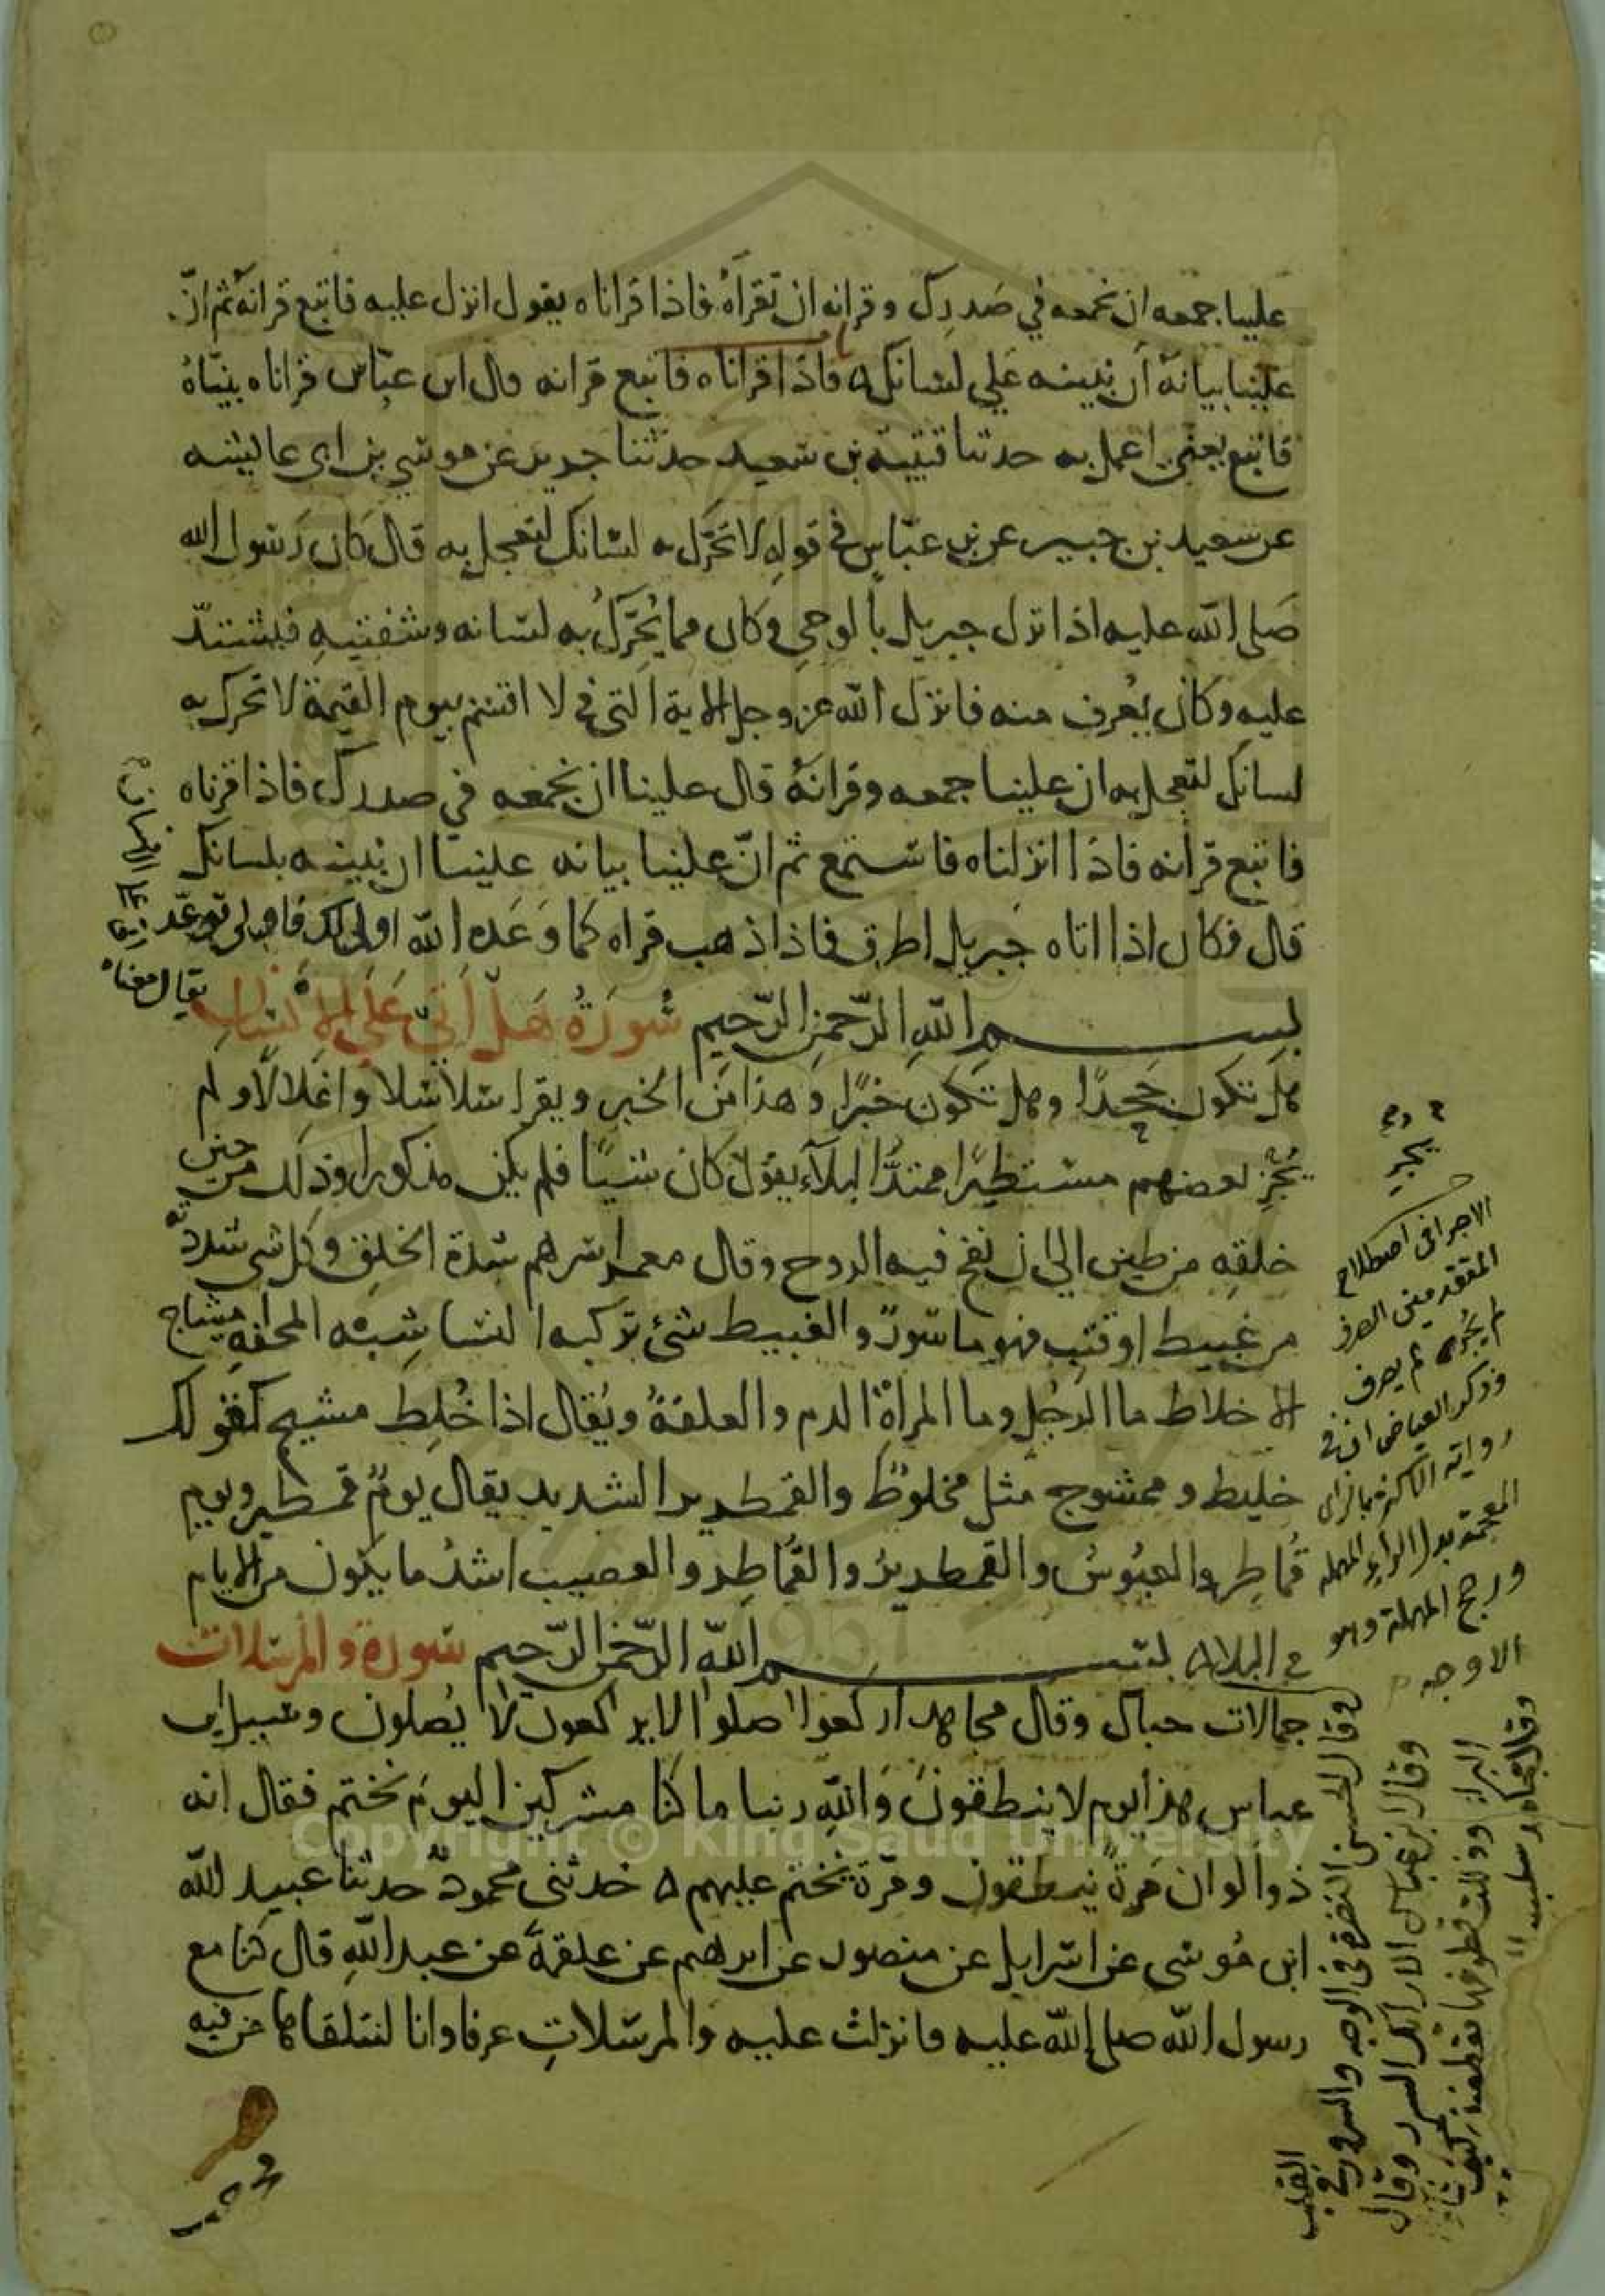 علينا جمعه ان نجمعه في صَدرِك وقرانه ان تقرأهُ فاذا قراناه يقول انزل عليه فاتبع قرانهُ ثم انّ
علينا بيانهُ اَن نبينه عَلي لسَانك فاذا قراناه فاتبع قرانه قال ابن عبّاس قراناه بينّاهُ
فاتبع يعني اعمل به حدثنا قتيبة بن سَعيد حدّثنا جرير عن موسَي بن ابى عايشه
عن سَعيد بن جبير عن بن عبّاس في قولهِ لا تحَرّك به لسَانك لتعجل به قال كان رَسول الله
صَلى الله عليه اذا نزل جبريل بالوحيِ وكان مما يُحَرّكُ به لسَانه وشفتيهِ فيشتدّ
عليه وكان يُعرف منه فانزل الله عز وجل الاية التي في لا اقسم بيوم القيمة لا تحرك به
لسانك لتعجل به ان علينا جمعه وقرانهُ قال علينا ان نجمعه في صدرك فاذا قرناه
فاتبع قرانه فاذا انزلناه فاستمع ثم انّ علينا بيانه علينا ان نبينه بلسانك
قال فكان اذا اتاه جبريل اطرق فاذا ذهب قراه كما وَعَده الله اولى لك فاولى توعّد
بسم اللهِ الرّحمنِ الرّحيم سُورَةُ هَل اَتى عَلَى الاِنسَانِ
يقال معناه
هل تكون جَحدًا وهل تكون خبرًا وَهذا مَن الخبر ويقرا سلاسلا واغلالًا ولم
يُجْرِ بعضهم مستطيرًا ممتدًّا البلاء يقول كان شيئًا فلم يكن مذكورا وذلك من حين
خلقهِ من طين الى ان نفخ فيه الروح وقال معمر اسرهم شدة الخلق وكل شي شددته
من غبيط او قتب فهو ماسورٌ والغبيط شئ تركبه النسا شبه المحفه امشاج
الاخلاط ما الرجُلِ وما المراة الدم والعلقةُ ويُقال اذا خُلِط مشيج كقولك
خليط وممشوج مثل مخلوطٌ والقمطرير الشديد يقال يومٌ قمطرير ويوم
قُماطِر والعَبُوسُ والقمطريرُ والقُماطِر والعصيب اشدُ ما يكون من الايام
في البلاء بسم الله الرّحمن الرّحيم سُورة والمُرسَلات
جمالات حبال وقال مجاهد اركعوا صلوا لا يركعون لا يُصلون وسُيل ابن
عباس هذا يوم لا ينطقونَ وَاللهِ ربنا ما كنا مشركين اليومَ نختم فقال انه
ذو الوان مَرةً ينطقون ومَرة نختم عليهم حدثنى محمودٌ حدثنا عبيد الله
ابن مُوسَى عن اسرايل عن منصور عن ابرهيم عن علقمةَ عن عبد اللهِ قال كنا مع
رسول الله صلى الله عليه فانزلت عليه والمرسَلاتِ عرفا وانا لنتلقاها من فيه
يجر
الاجرا في اصطلاح
المتقدمين الصرف
لم يُجْر لم يصرف
وذكر العياض ان في
رواية الاكثر بالزاى
المعجمة بدل الراء المهمله
ورجح المهملة وهو
الاوجه
وقال الحسن النضرة في الوجه والسرور في
القلب
وقال ابن عباس الارائك السرر وقال
البراء وذللت قطوفها يقطفون كيف شاءوا
وقال مجاهد سلسبيلا